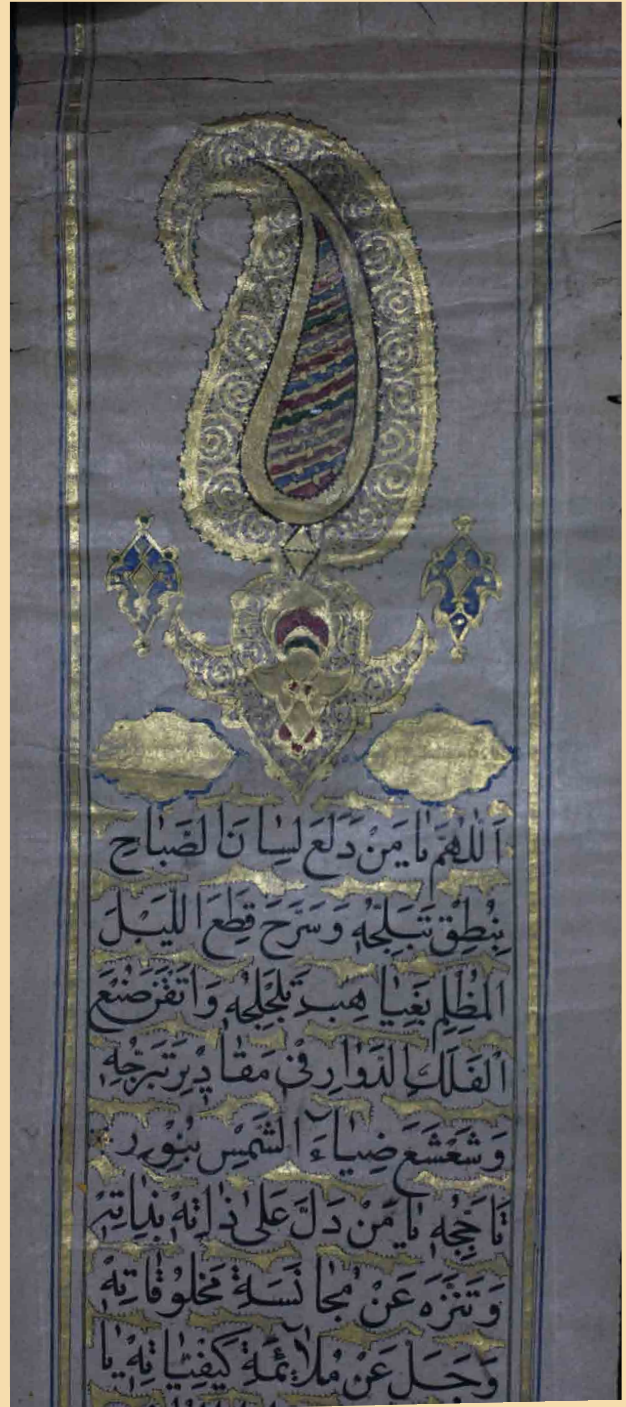 اَللّٰهُمَّ يٰا مَنْ دَلَعَ لِسٰانَ الصَّبٰاحِ
بِنُطْقِ تَبَلُّجِهِ وَسَرَّحَ قِطَعَ اللَّيْلِ
الْمُظْلِمِ بِغَيٰاهِبِ تَلَجْلُجِهِ وَاَتْقَنَ صُنْعَ
الْفَلَكِ الدَّوّٰارِ فِي مَقٰادِيرِ تَبَرُّجِهِ
وَشَعْشَعَ ضِيٰاءَ الشَّمْسِ بِنُورِ
تَاَجُّجِهِ يٰا مَنْ دَلَّ عَلىٰ ذٰاتِهِ بِذٰاتِهِ
وَتَنَزَّهَ عَنْ مُجٰانَسَةِ مَخْلُوقٰاتِهِ
وَجَلَّ عَنْ مُلآئَمَةِ كَيْفِيّٰاتِهِ يٰا